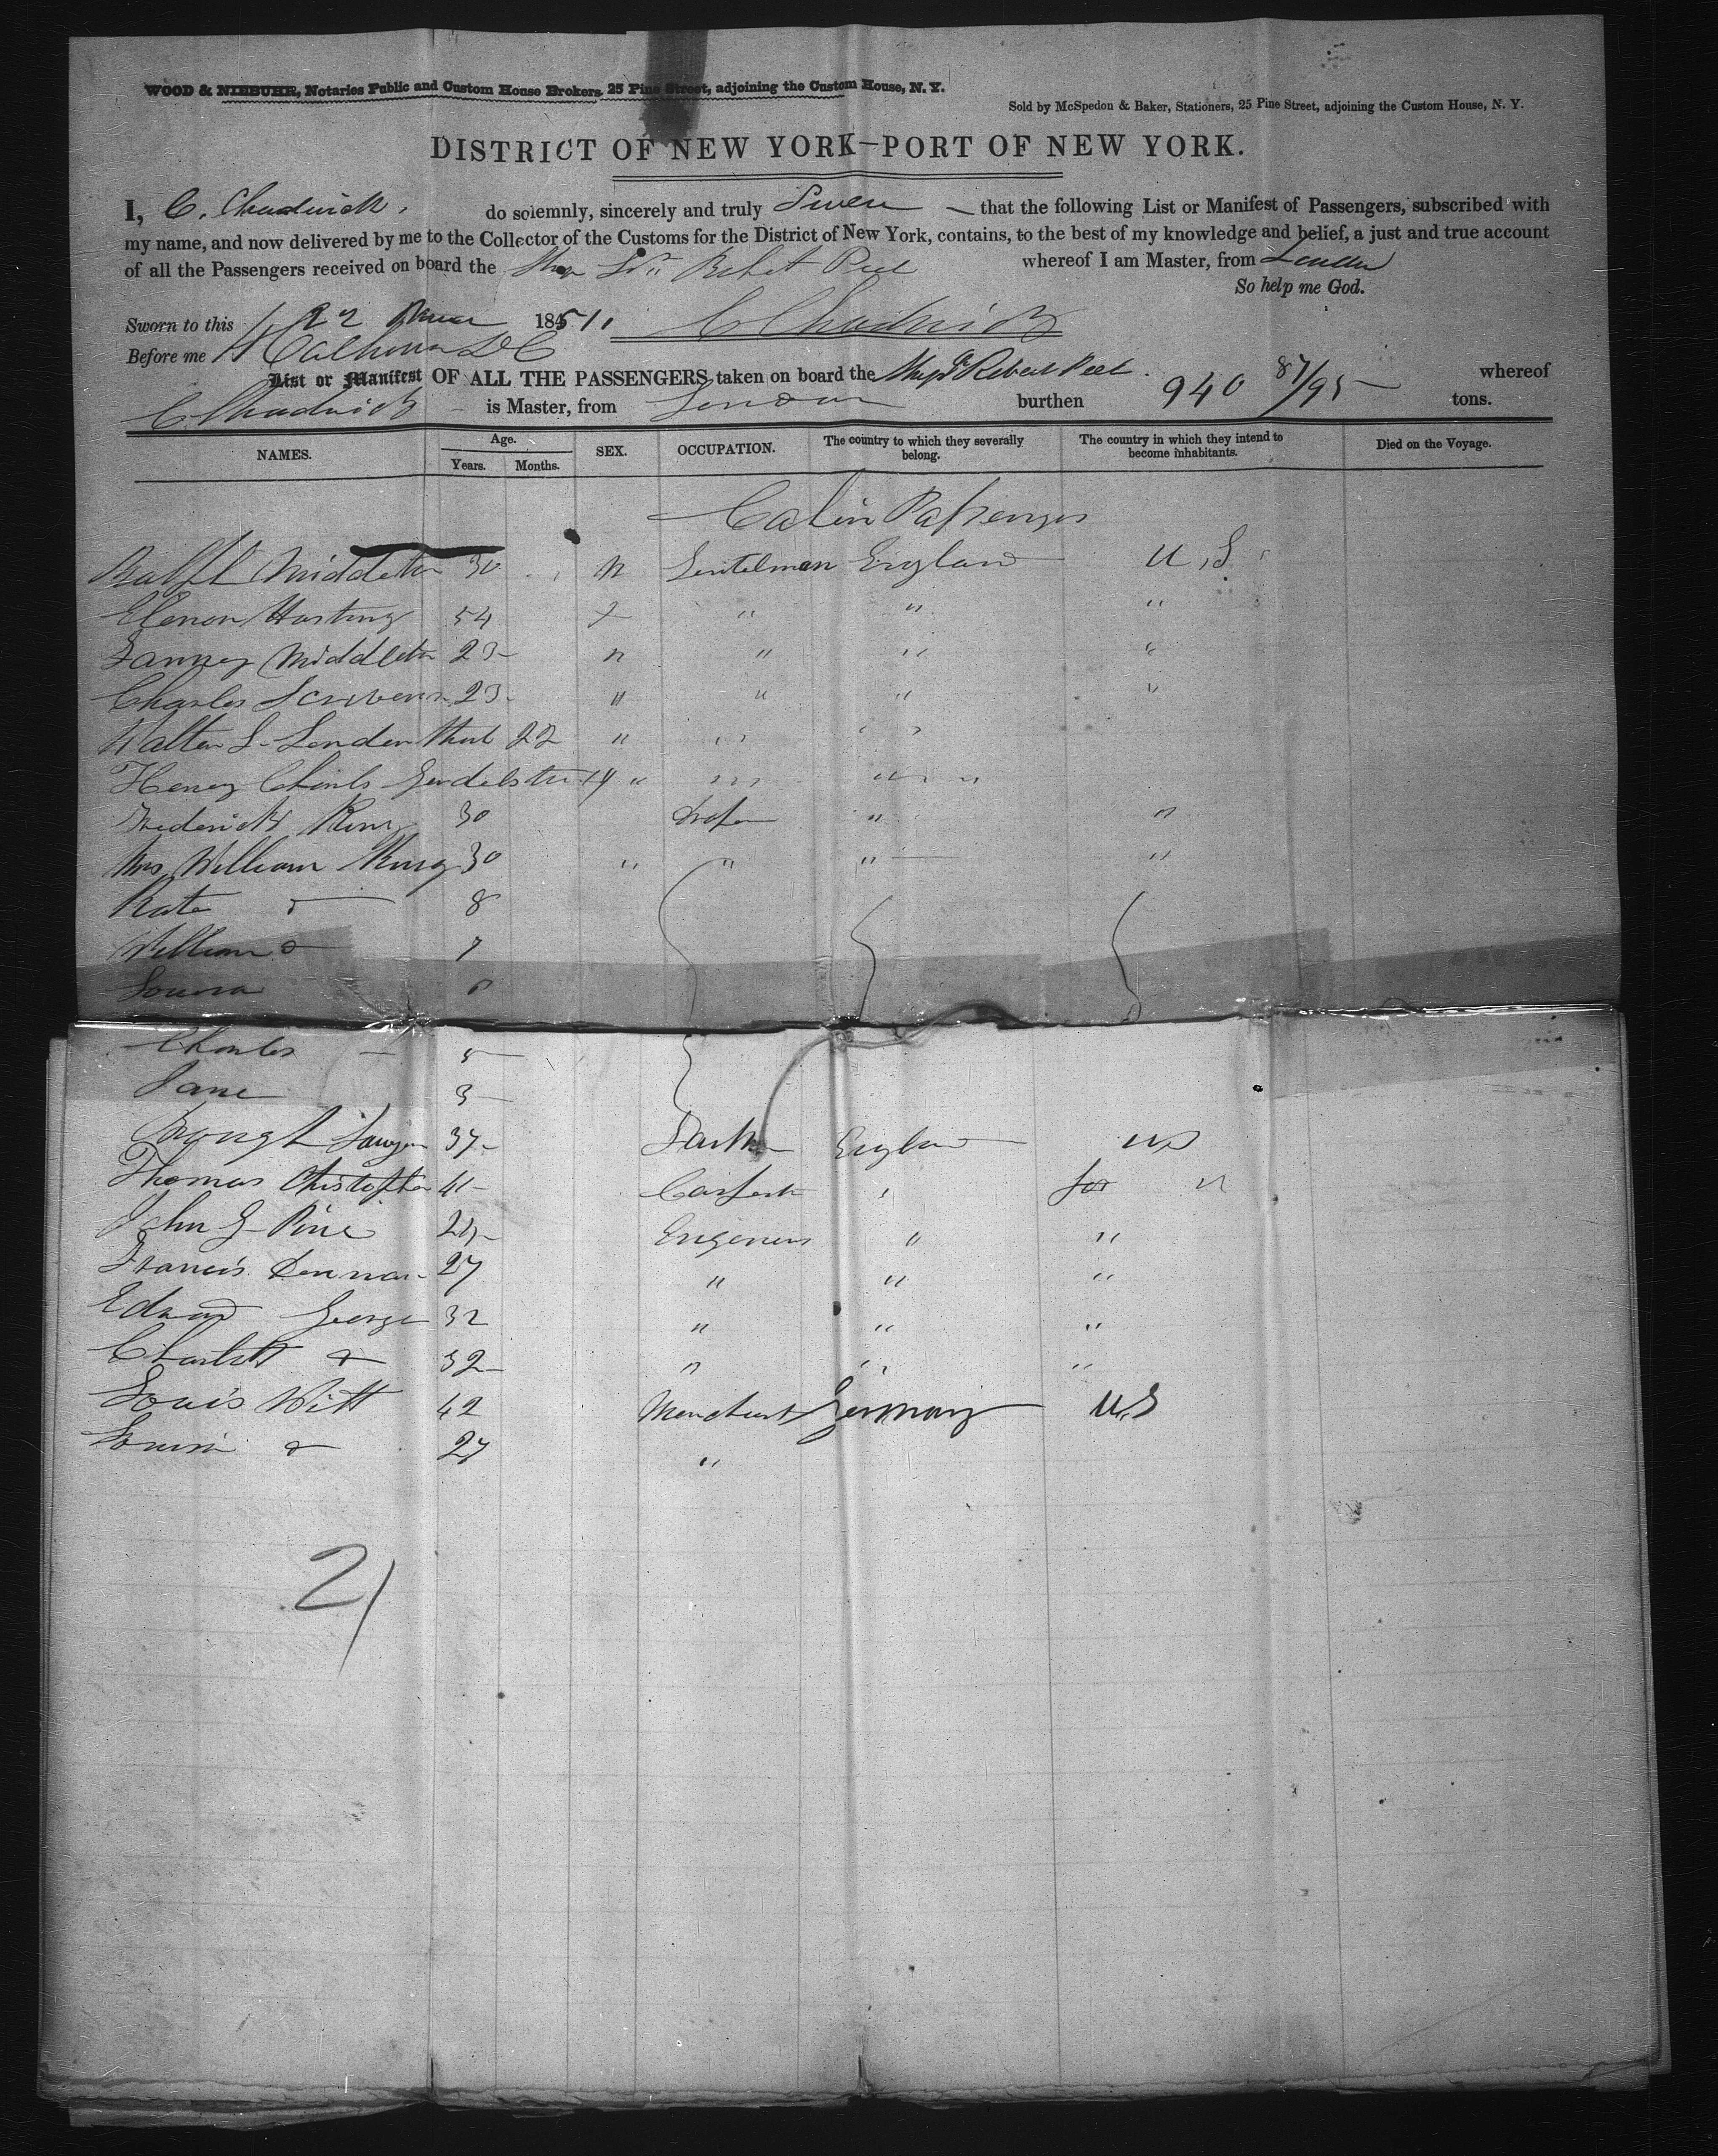 WOOD & NIEBUHR, Notaries Public and Custom House Brokers, 25 Pine Street, adjoining the Custom House, N. Y.
Sold by McSpedon & Baker, Stationers, 25 Pine Street, adjoining the Custom House, N. Y.
DISTRICT OF NEW YORK—PORT OF NEW YORK.
I, C. Chadwick, do solemnly, sincerely and truly Swear that the following List or Manifest of Passengers, subscribed with
my name, and now delivered by me to the Collector of the Customs for the District of New York, contains, to the best of my knowledge and belief, a just and true account
of all the Passengers received on board the Ship Sir Robert Peel whereof I am Master, from London
So help me God.
Sworn to this 22 1851 C Chadwick
Before me Calhoun
List or Manifest OF ALL THE PASSENGERS taken on board the Ship Sr Robert Peel whereof
C Chadwick is Master, from London burthen 940 87/95 tons.
NAMES. Age. Years. Months. SEX. OCCUPATION. The country to which they severally belong. The country in which they intend to become inhabitants. Died on the Voyage.
Cabin Passengers
Middleton 30 Gentelman England U.S
Elenor Hasting 54 " " "
Middleton 23 " " "
Charles 23 " " " "
Walter S. 22 " " "
Henry 19 " " "
Frederick King 30 " "
Mrs William King 30 " " " "
Kate 8
William 7
Louisa 6
Charles 5
Jane 3
37 England US
Thomas Christopher 41 "
John G 29 Engeneer " "
Francis 27 " " "
Edward George 32 " " "
Charlott do 32 " " "
Louis Witt 42 Merchant Germany U.S
Louisa do 27 "
21